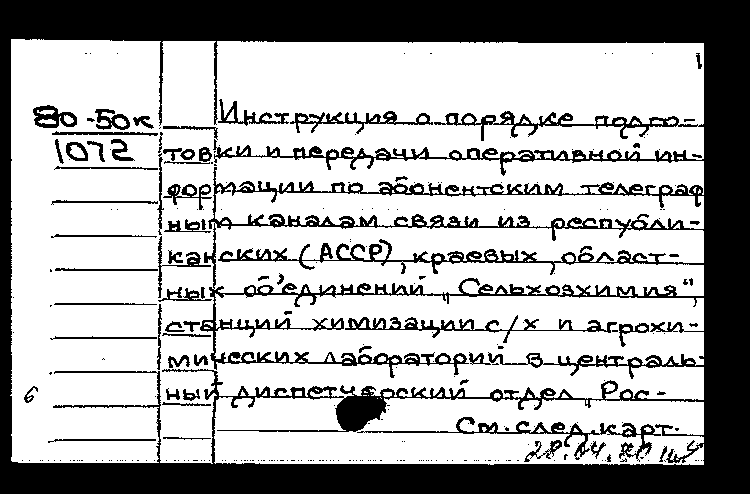 1
80-50к Инструкция о порядке подго-
1072 товки и передачи оперативной ин-
формации по абонентским телеграф
ным каналам связи из республи-
канских (АССР), краевых, област-
ных об'единений „Сельхозхимия",
станций химизации с/х и агрохи-
мических лабораторий в централь-
6 ный диспетчерский отдел „Рос-
См. след. карт.
28.04.80